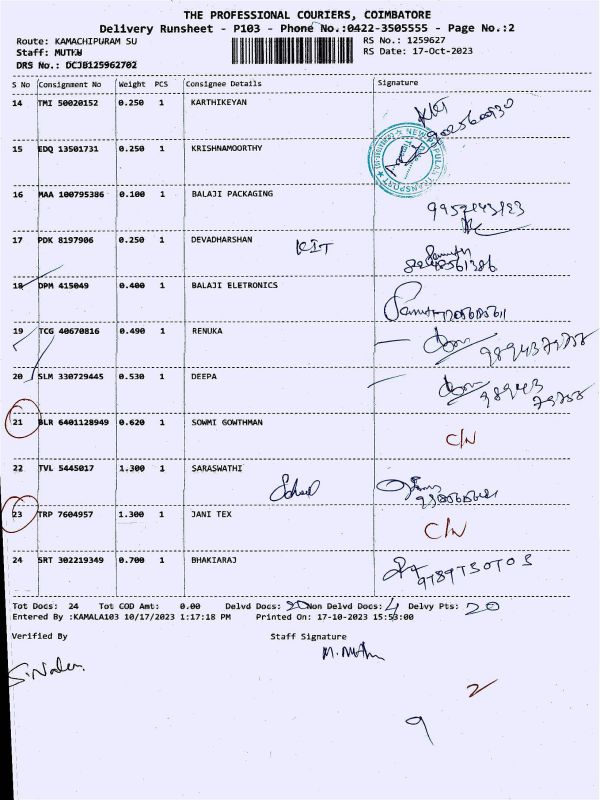 THE PROFESSIONAL COURIERS, COIMBATORE
Delivery Runsheet - P103 - Phone No.:0422-3505555 - Page No.:2
Route: KAMACHIPURAM SU RS No.: 1259627
Staff: MUTKU RS Date: 17-Oct-2023
DRS No.: DCJB125962702
S No Consignment No Weight PCS Consignee Details Signature
14 TMI 50020152 0.250 1 KARTHIKEYAN
15 EDQ 13501731 0.250 1 KRISHNAMOORTHY
16 MAA 100795386 0.100 1 BALAJI PACKAGING
17 PDK 8197906 0.250 1 DEVADHARSHAN KIT
18 DPM 415049 0.400 1 BALAJI ELETRONICS
19 TCG 40670816 0.490 1 RENUKA
20 SLM 330729445 0.530 1 DEEPA
21 BLR 6401128949 0.620 1 SOWMI GOWTHMAN C/N
22 TVL 5445017 1.300 1 SARASWATHI
TRP 7604957 1.300 1 JANI TEX C/N
24 SRT 302219349 0.700 1 BHAKIARAJ 9789750703
Tot Docs: 24 Tot COD Amt: 0.00 Delvd Docs: 20 Non Delvd Docs: 4 Delvy Pts: 20
Entered By :KAMALA103 10/17/2023 1:17:18 PM Printed On: 17-10-2023 15:53:00
Verified By Staff Signature
2
9